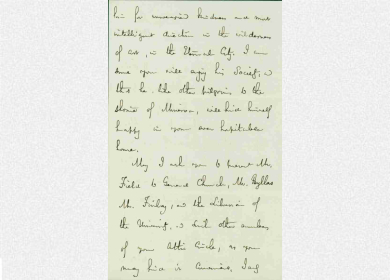 him for unwearied kindness and most
intelligent direction in the wilderness
of art, in the Eternal City. I am
sure you will enjoy his Society, &
that he, like other pilgrims to the
shrine of Minerva, will find himself
happy in your ever hospitable
home.
May I ask you to present Mr.
Field to General Church, Mr.
Mr. Finlay, & the Librarian of
the University, & such other members
of your Attic Circle, as you
may find it convenient,